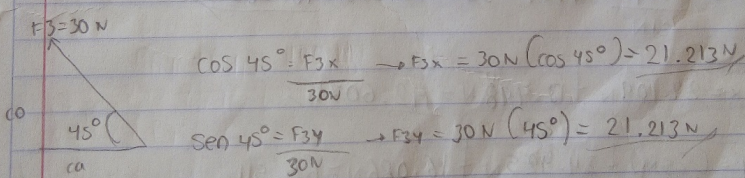 F3=30N
cos 45° = F3x / 30N → F3x = 30N (cos 45°) = 21.213N
co
45°
sen 45° = F3y / 30N → F3y = 30N (45°) = 21.213N
ca